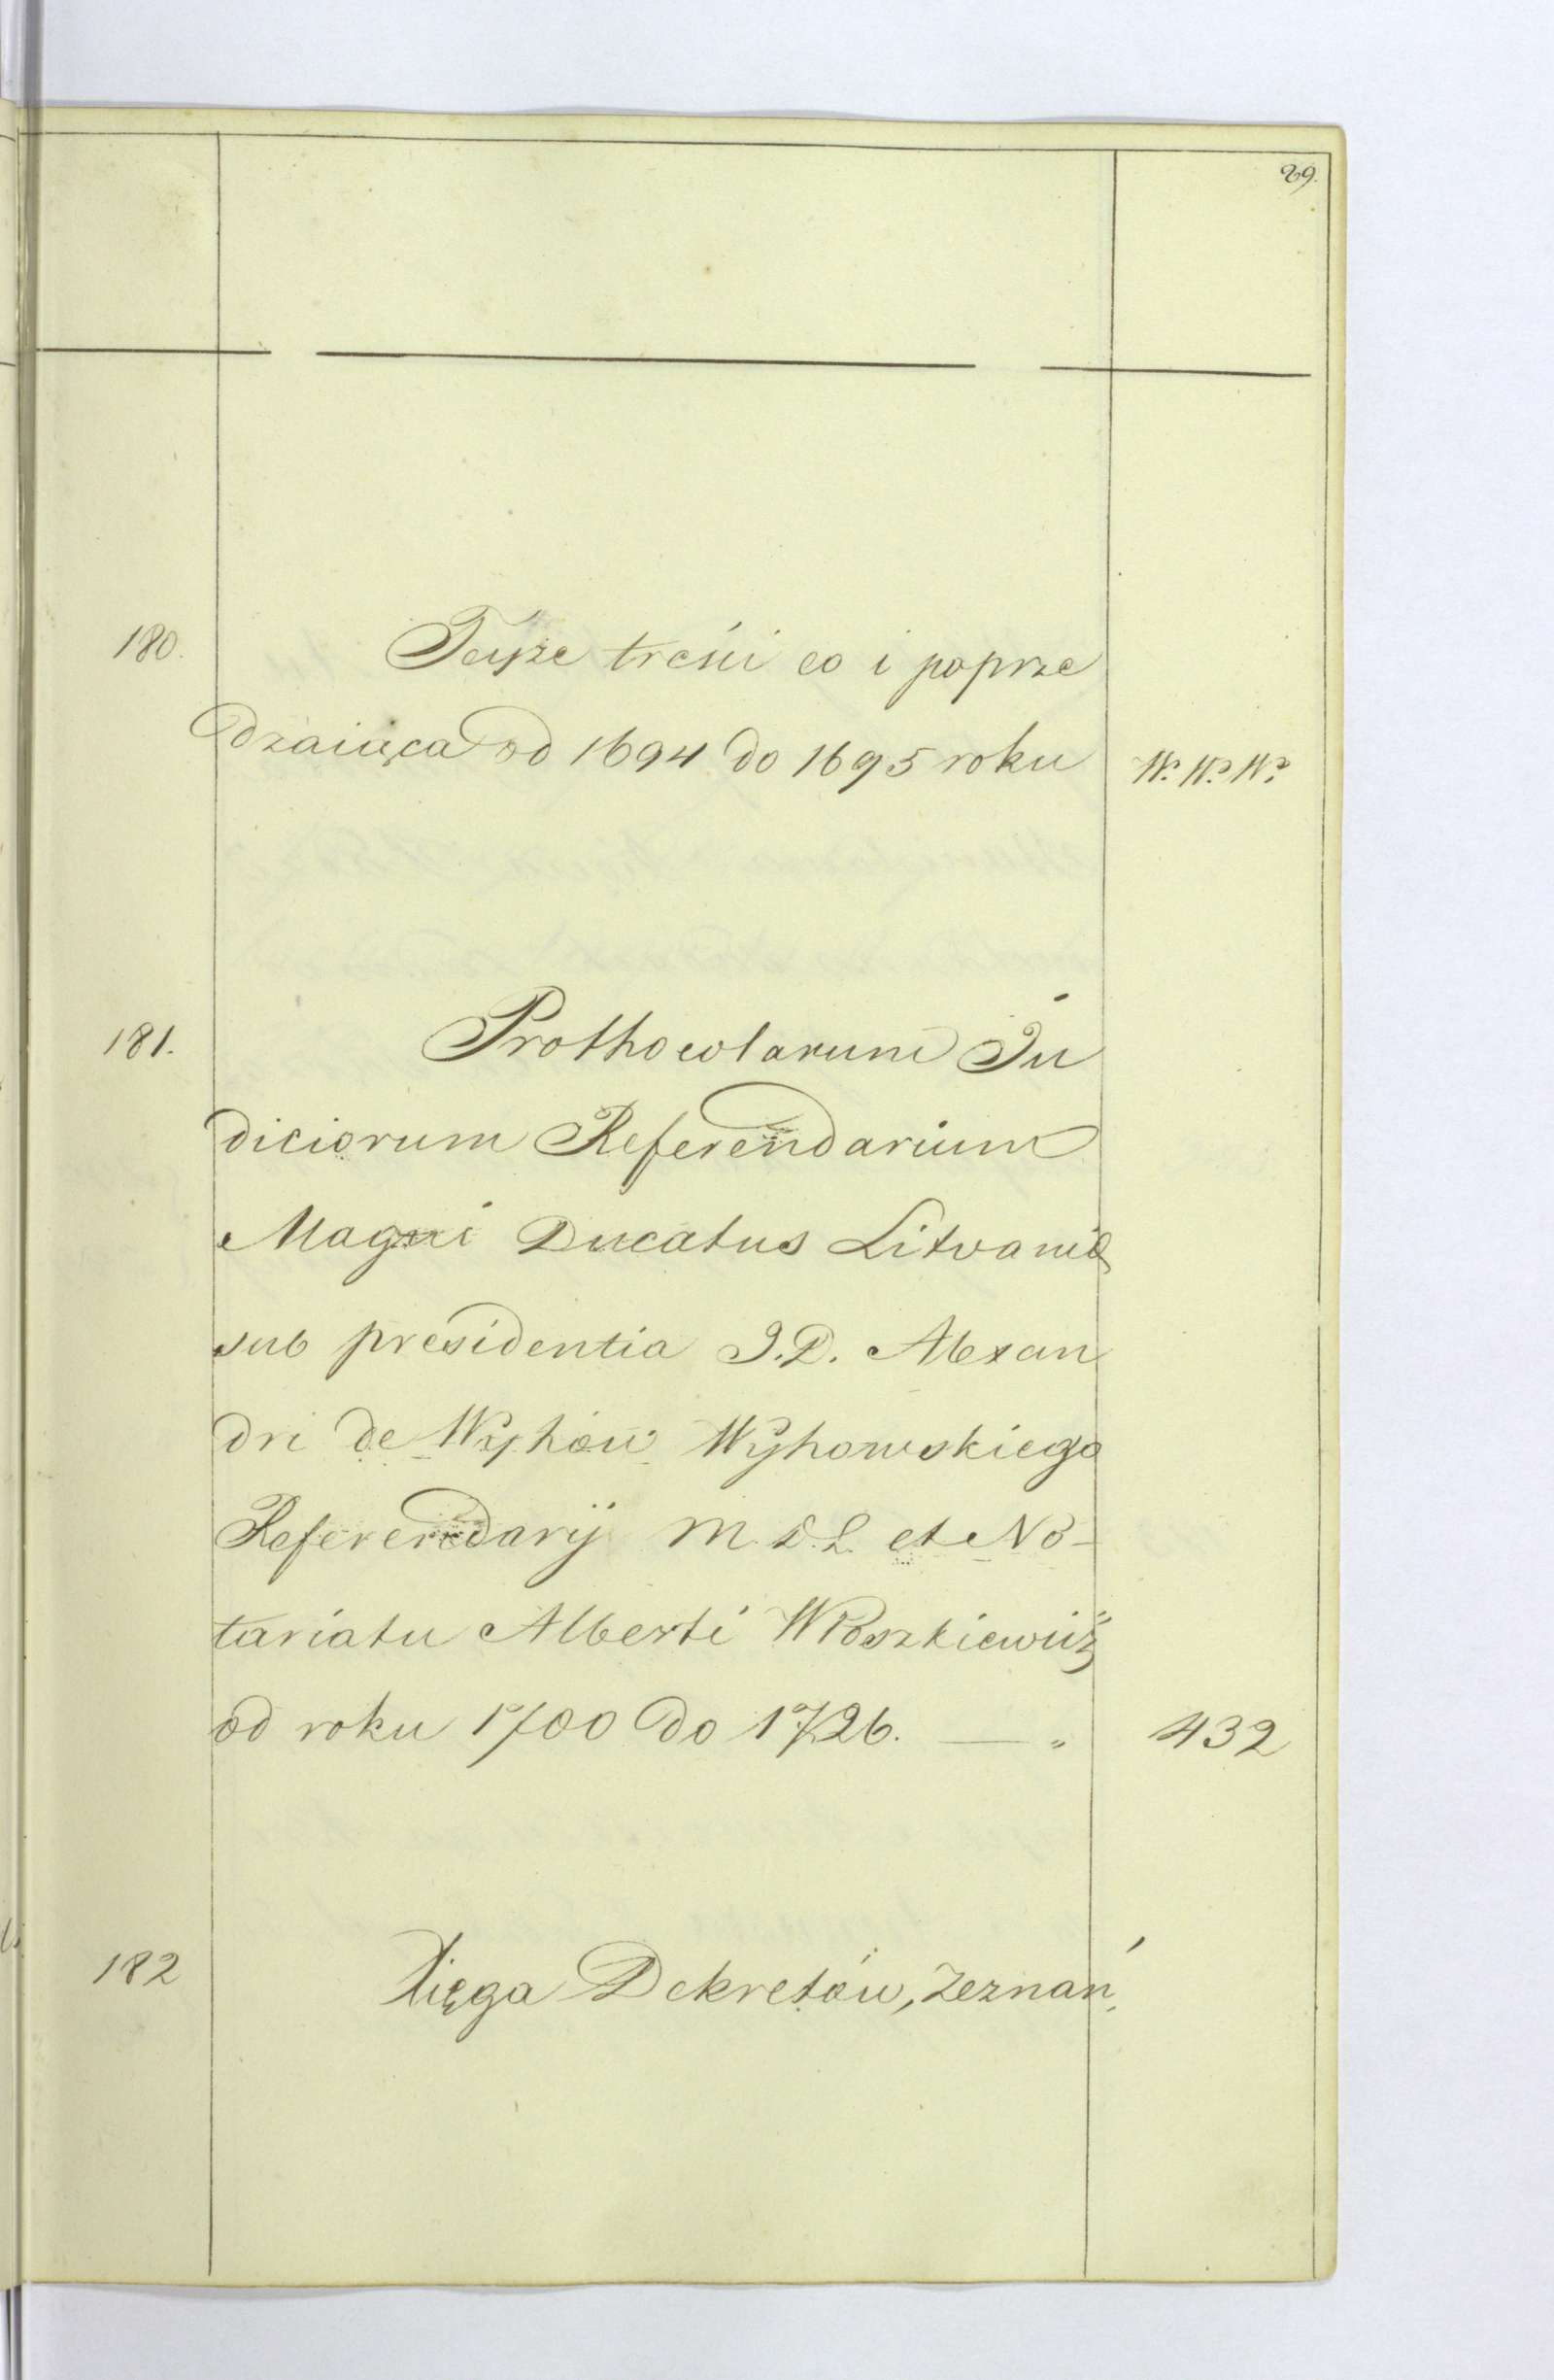 29.
180. Teyże treści co i poprze
dzaiąca od 1694 do 1695 roku W. W. W.
181. Prothocolarum Ju
diciorum Referendarium
Magni Ducatus Litvaniæ
sub presidentia J.D. Alexan
dri de Wyhów Wyhowskiego
Referendarij M. D. L. et No-
tariatu Alberti Włoszkiewicz
od roku 1700 do 1726. — „ 432
182 Xięga Dekretów, Zeznań,